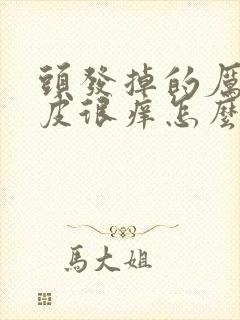 頭發掉的厲
皮很痒怎麼
馬大姐